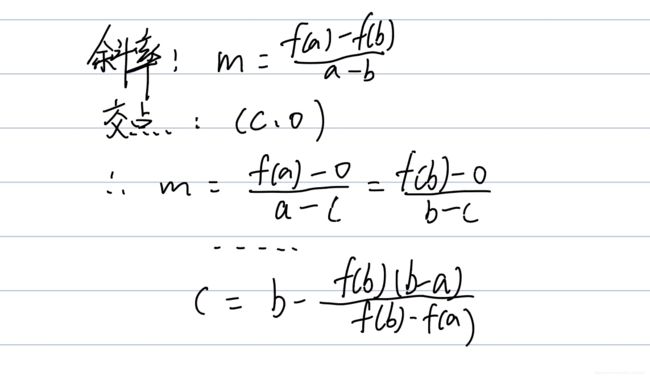 斜率: m = (f(a)-f(b))/(a-b)
交点: (c,0)
∴ m = (f(a)-0)/(a-c) = (f(b)-0)/(b-c)
.....
c = b - (f(b)(b-a))/(f(b)-f(a))